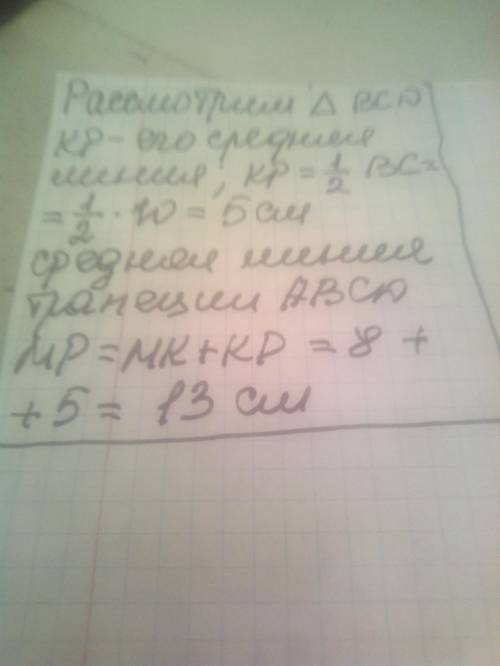 Рассмотрим △ BCD
KP - его средняя
линия, KP = 1/2 BC =
= 1/2 · 10 = 5 см
средняя линия
трапеции ABCD
MP = MK + KP = 8 +
+ 5 = 13 см